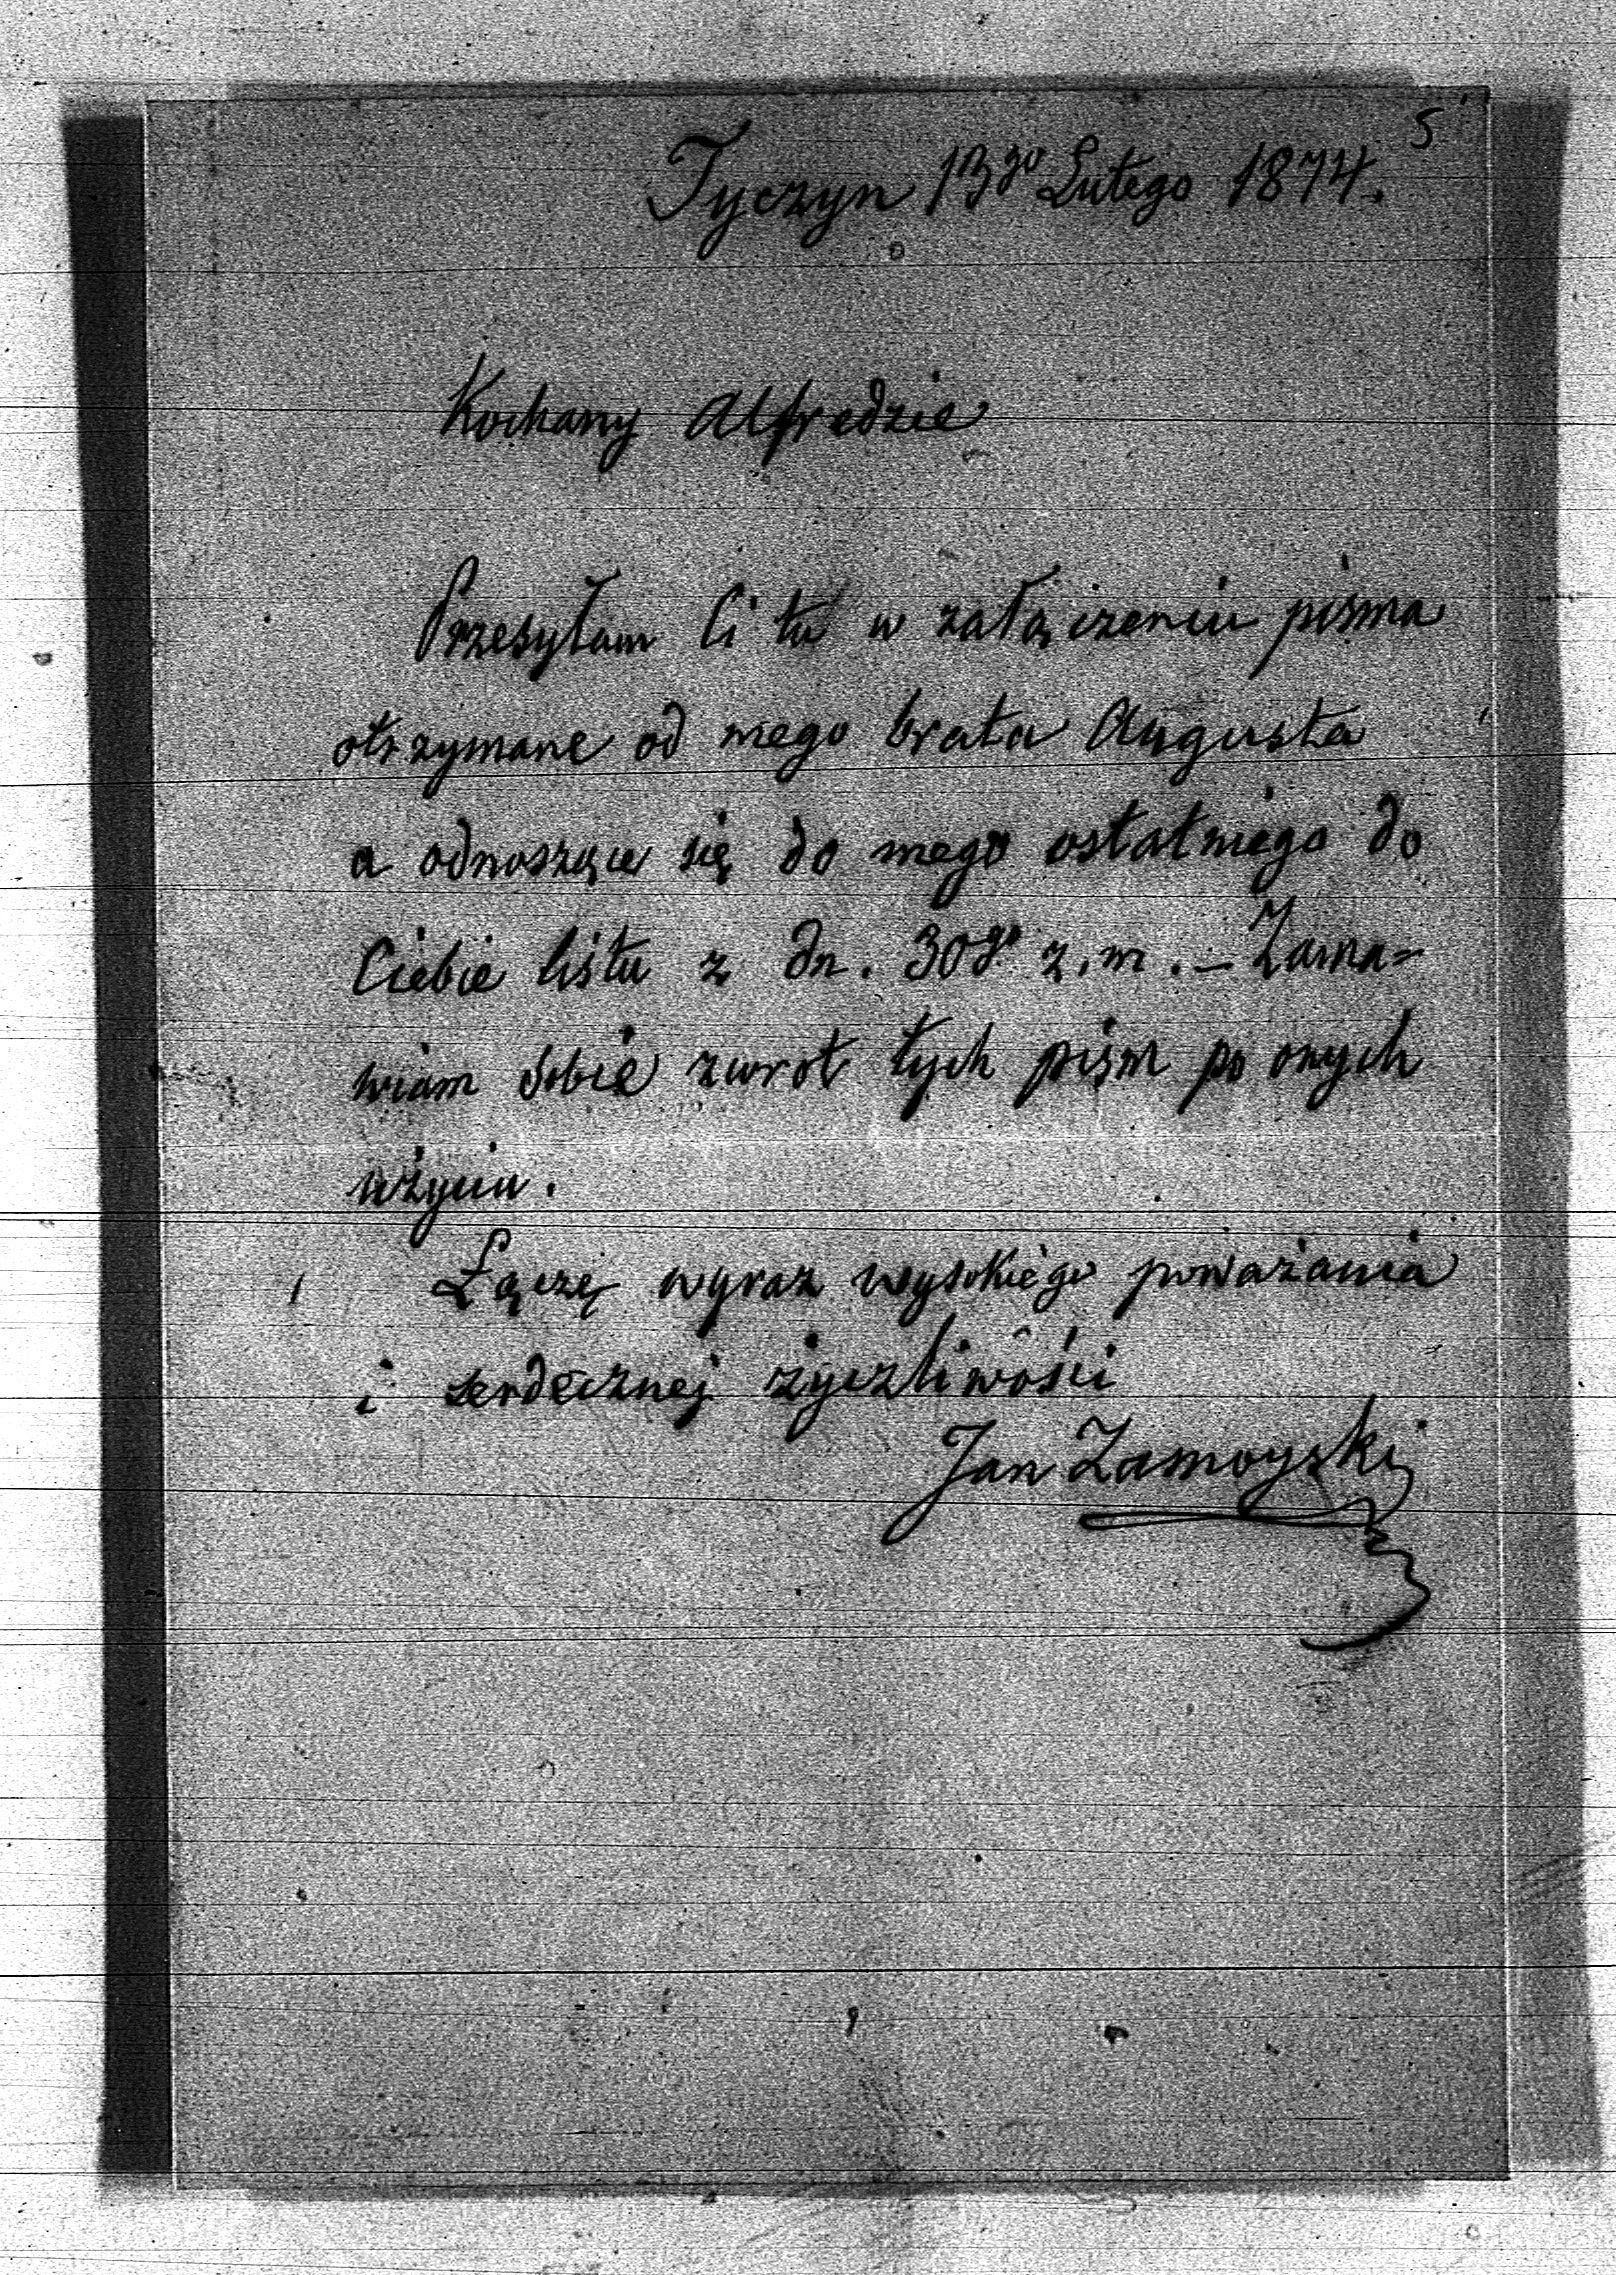 5
Tyczyn 13go Lutego 1874.
Kochany Alfredzie
Przesyłam Ci tu w załączeniu pisma
otrzymane od mego brata Augusta
a odnoszące się do mego ostatniego do
Ciebie listu z dn. 30go z. m. – Zama=
wiam sobie zwrot tych pism po onych
użyciu.
Łączę wyraz wysokiego poważania
i serdecznej życzliwości
Jan Zamoyski